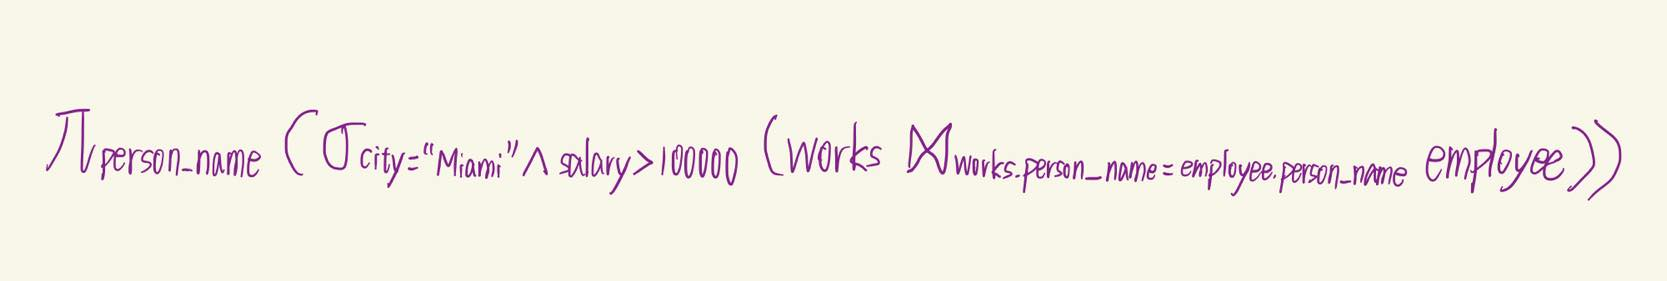 π person_name (σ city="Miami" ∧ salary>100000 (works ⋈ works.person_name = employee.person_name employee))